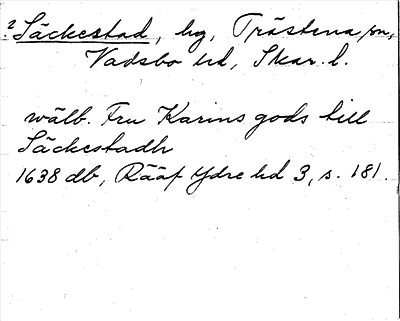 ? Säckestad, hg, Trästena sn,
Vadsbo hd, Skar. l.
wälb. Fru Karins gods till
Säckestadh
1638 db, Rääf Ydre hd 3, s. 181.